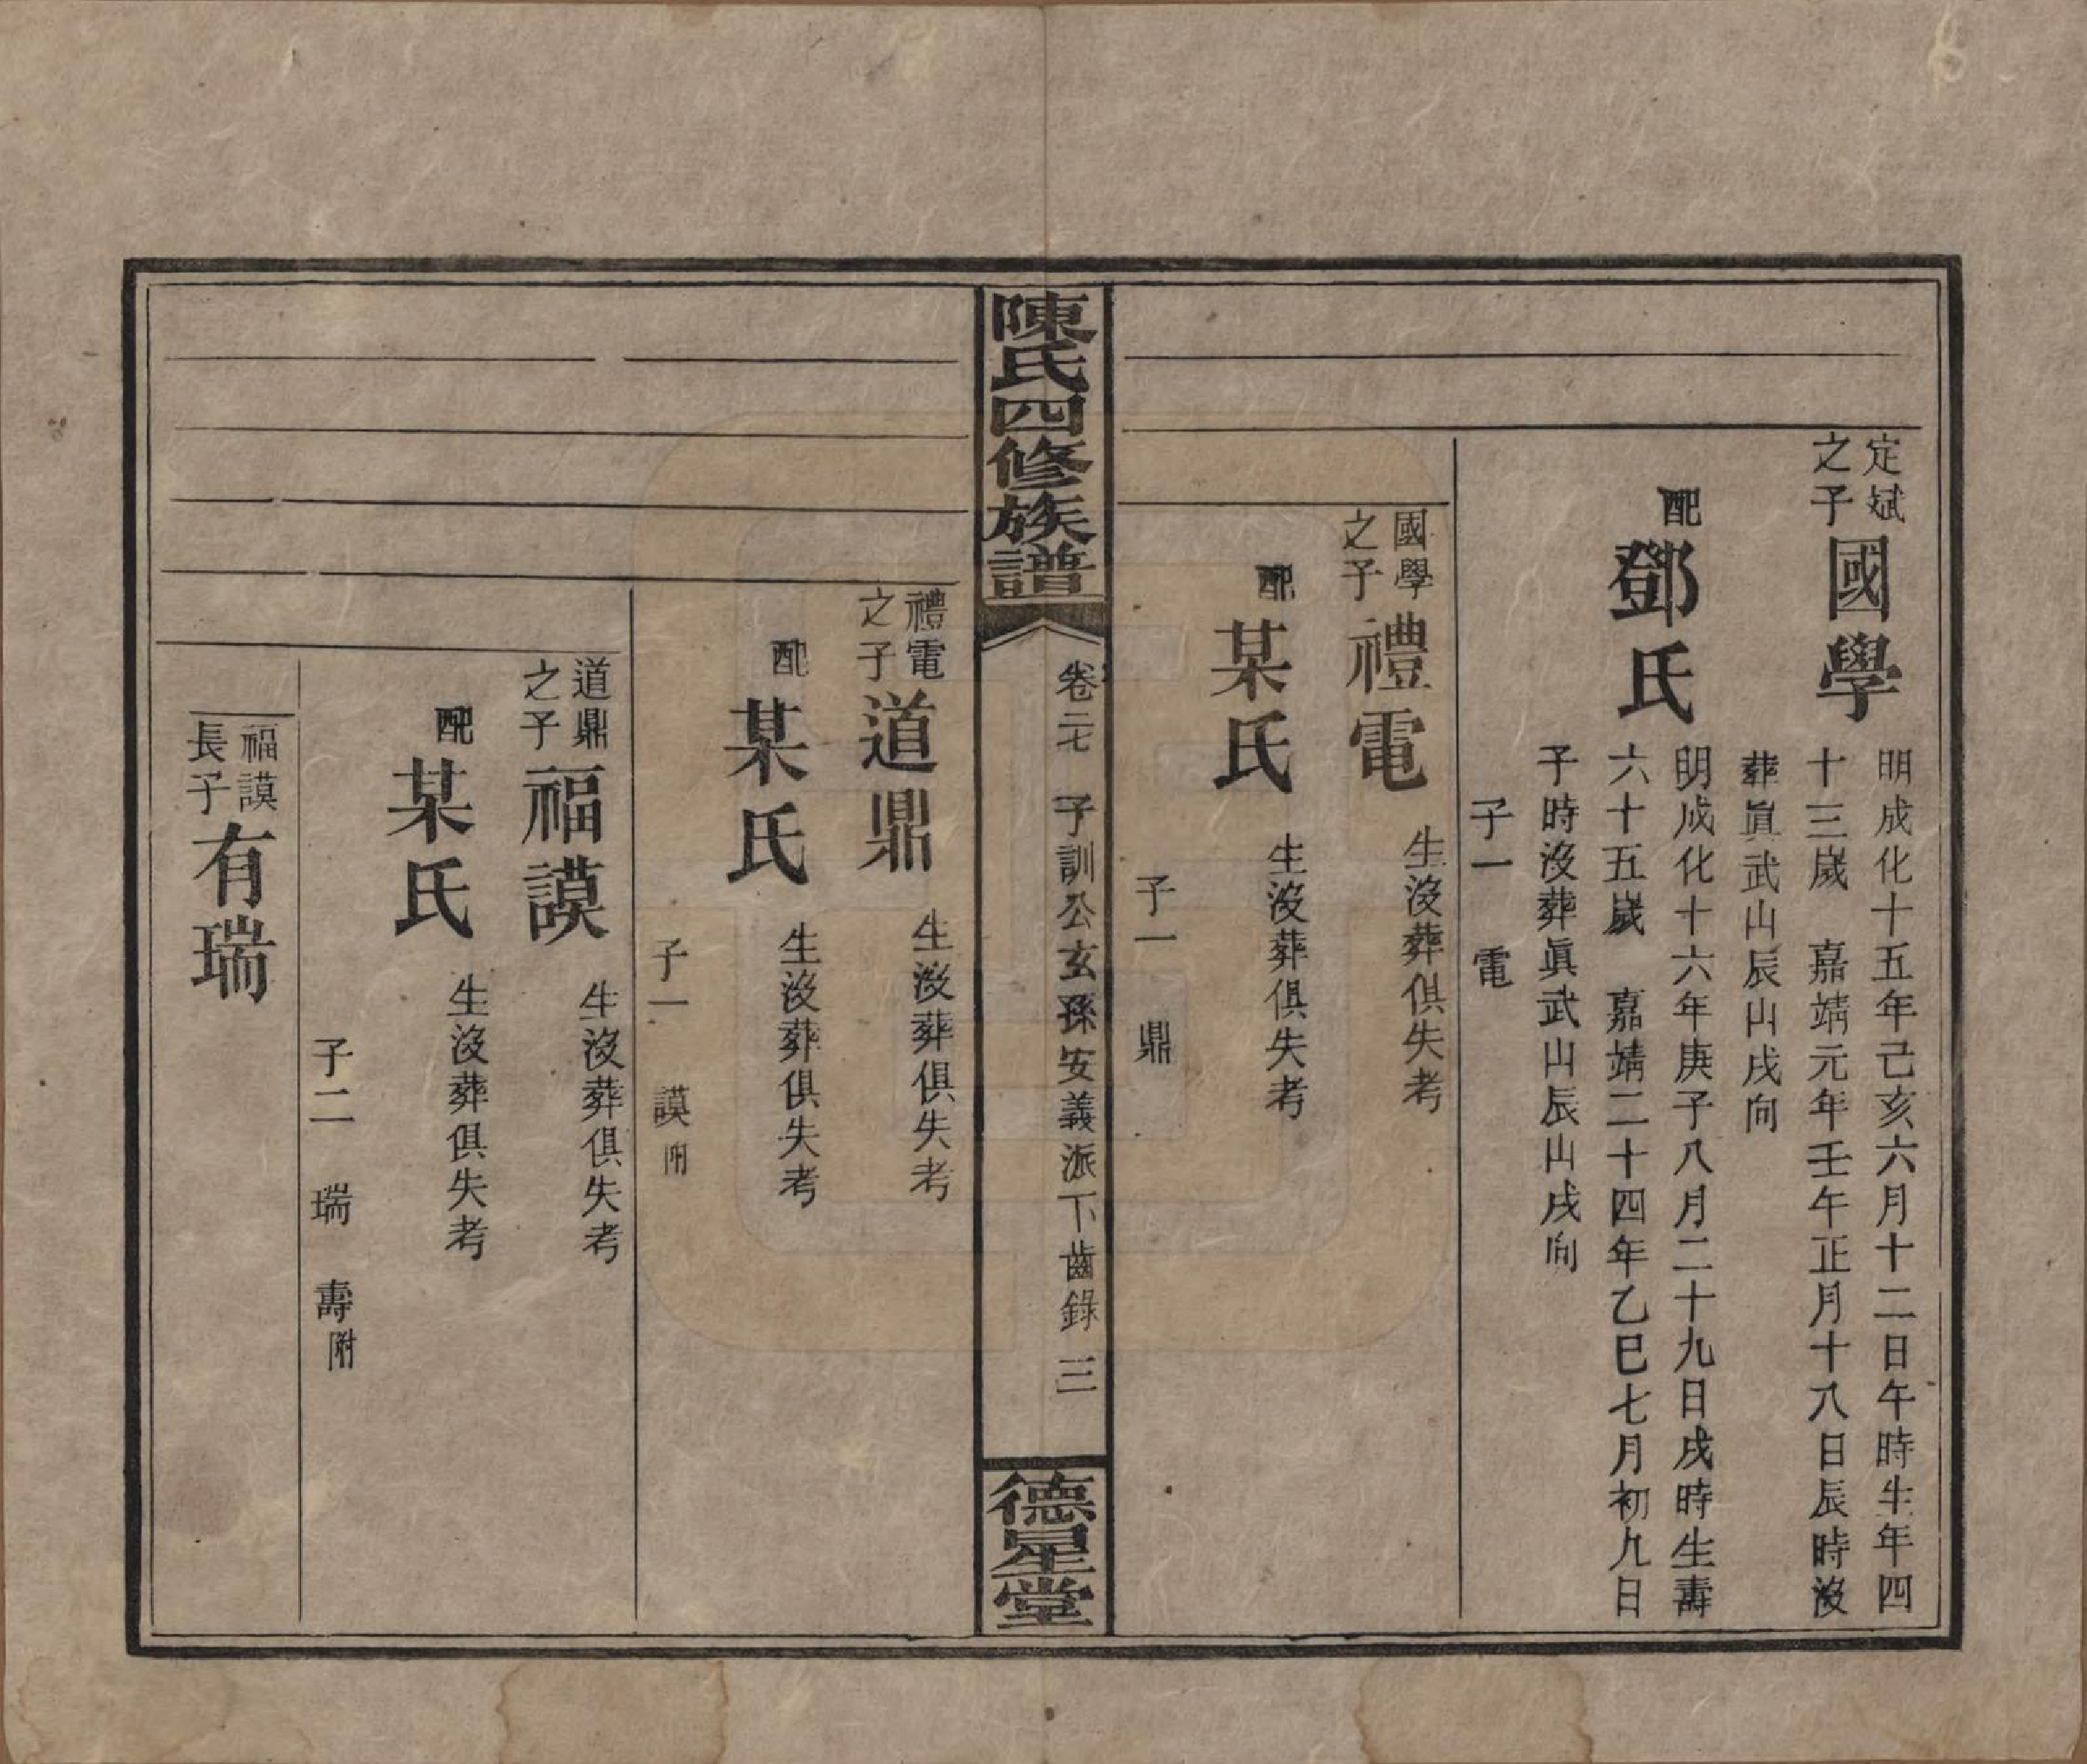 定斌
之子
國學
明成化十五年己亥六月十二日午時生年四
十三歲 嘉靖元年壬午正月十八日辰時沒
葬眞武山辰山戌向
配
鄧氏
明成化十六年庚子八月二十九日戌時生壽
六十五歲 嘉靖二十四年乙巳七月初九日
子時沒葬眞武山辰山戌向
子一 電
國學
之子
禮電
生沒葬俱失考
配
某氏
生沒葬俱失考
子一 鼎
陳氏四修族譜
卷二七 子訓公玄孫安義派下齒錄 三
德星堂
禮電
之子
道鼎
生沒葬俱失考
配
某氏
生沒葬俱失考
子一 謨附
道鼎
之子
福謨
生沒葬俱失考
配
某氏
生沒葬俱失考
子二 瑞 壽附
福謨
長子
有瑞